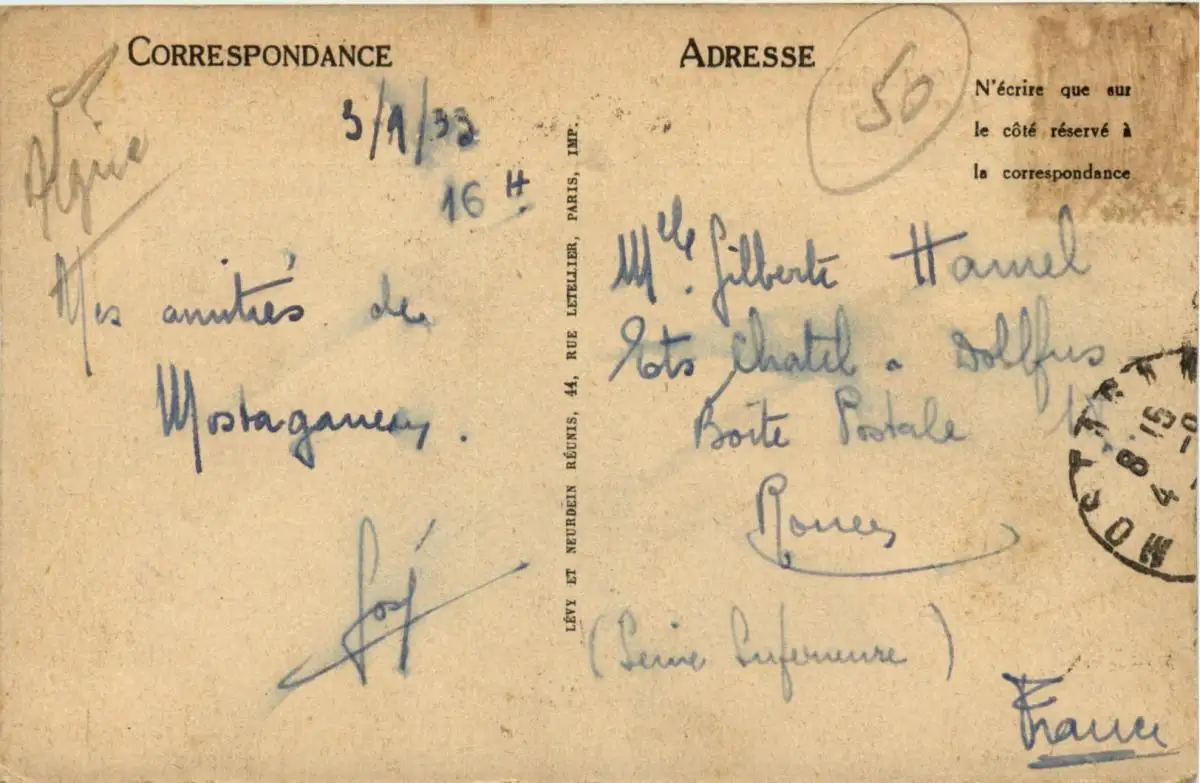 CORRESPONDANCE
Algérie
3/1/33
16 H
Mes amitiés de
Mostaganem.
José
LÉVY ET NEURDEIN RÉUNIS, 44, RUE LETELLIER, PARIS, IMP.
ADRESSE
50
N'écrire que sur
le côté réservé à
la correspondance
Mlle. Gilberte Hamel
Ets Chatel & Dollfus
Boîte Postale
Rouen
(Seine Inférieure)
France
MOSTAGAN
8.15
4